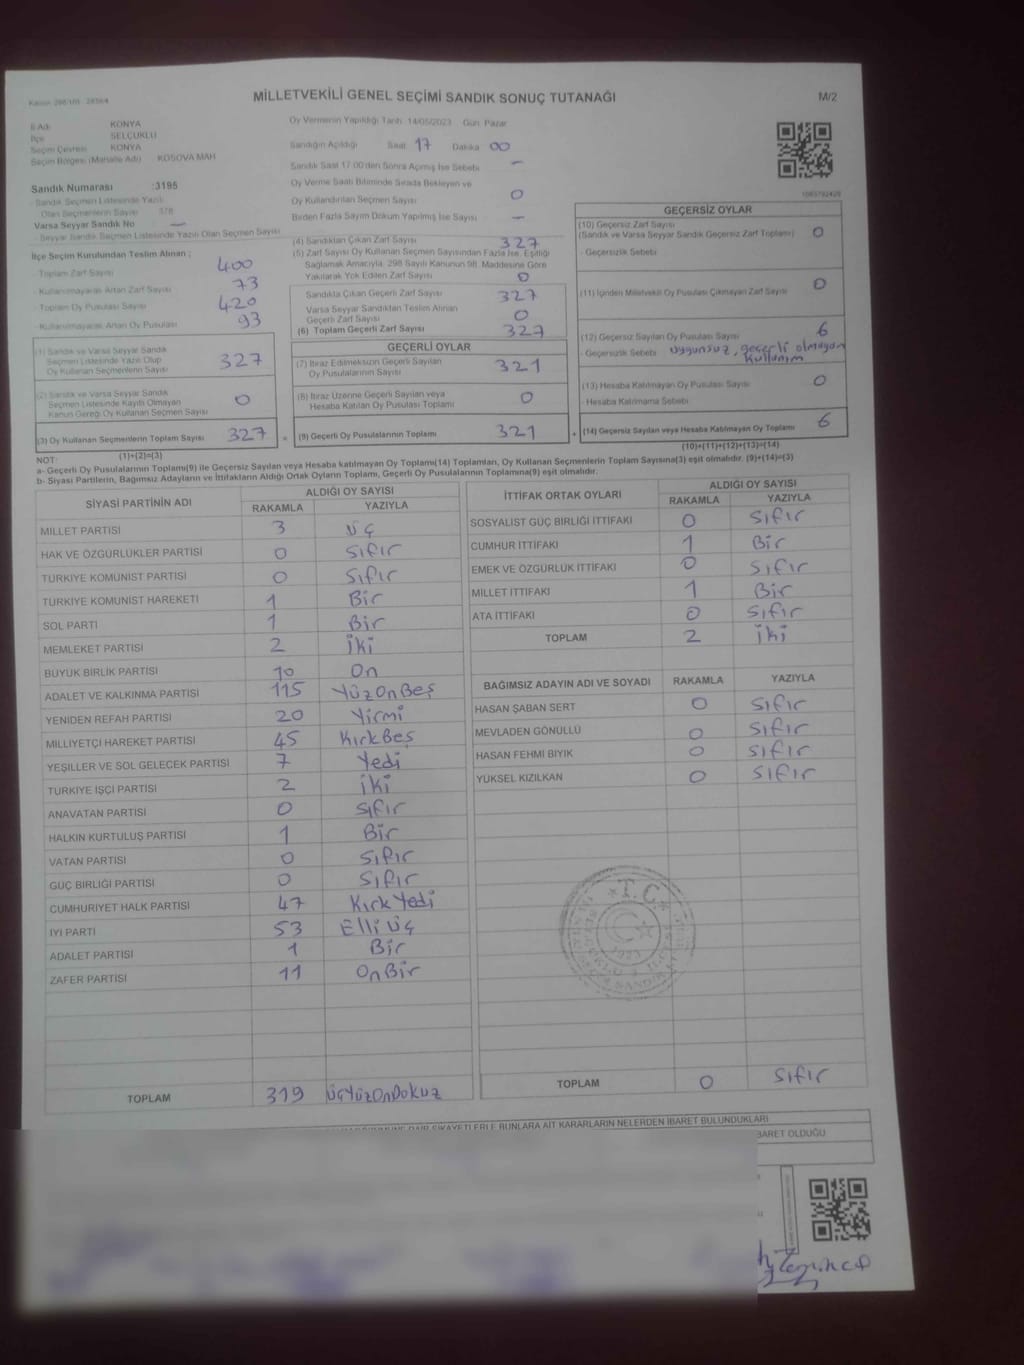 MİLLETVEKİLİ GENEL SEÇİMİ SANDIK SONUÇ TUTANAĞI
M/2
İl Adı KONYA
İlçe SELÇUKLU
Seçim Çevresi KONYA
Seçim Bölgesi (Mahalle Adı) KOSOVA MAH
Sandık Numarası :3195
- Sandık Seçmen Listesinde Yazılı
Olan Seçmenlerin Sayısı 378
Varsa Seyyar Sandık No —
- Seyyar Sandık Seçmen Listesinde Yazılı Olan Seçmen Sayısı
İlçe Seçim Kurulundan Teslim Alınan ;
- Toplam Zarf Sayısı 400
- Kullanılmayarak Artan Zarf Sayısı 73
- Toplam Oy Pusulası Sayısı 420
- Kullanılmayarak Artan Oy Pusulası 93
(1) Sandık ve Varsa Seyyar Sandık
Seçmen Listesinde Yazılı Olup
Oy Kullanan Seçmenlerin Sayısı 327
(2) Sandık ve Varsa Seyyar Sandık
Seçmen Listesinde Kayıtlı Olmayan
Kanun Gereği Oy Kullanan Seçmen Sayısı 0
(3) Oy Kullanan Seçmenlerin Toplam Sayısı 327 =
(1)+(2)=(3)
Oy Vermenin Yapıldığı Tarih 14/05/2023 Gün Pazar
Sandığın Açıldığı Saat 17 Dakika 00
Sandık Saat 17:00'den Sonra Açılmış İse Sebebi —
Oy Verme Saati Bitiminde Sırada Bekleyen ve
Oy Kullandırılan Seçmen Sayısı 0
Birden Fazla Sayım Döküm Yapılmış İse Sayısı —
(4) Sandıktan Çıkan Zarf Sayısı 327
(5) Zarf Sayısı Oy Kullanan Seçmen Sayısından Fazla İse, Eşitliği
Sağlamak Amacıyla, 298 Sayılı Kanunun 98. Maddesine Göre
Yakılarak Yok Edilen Zarf Sayısı 0
Sandıkta Çıkan Geçerli Zarf Sayısı 327
Varsa Seyyar Sandıktan Teslim Alınan
Geçerli Zarf Sayısı 0
(6) Toplam Geçerli Zarf Sayısı 327
GEÇERLİ OYLAR
(7) İtiraz Edilmeksizin Geçerli Sayılan
Oy Pusulalarının Sayısı 321
(8) İtiraz Üzerine Geçerli Sayılan veya
Hesaba Katılan Oy Pusulası Toplamı 0
(9) Geçerli Oy Pusulalarının Toplamı 321 +
GEÇERSİZ OYLAR
(10) Geçersiz Zarf Sayısı
(Sandık ve Varsa Seyyar Sandık Geçersiz Zarf Toplamı) 0
- Geçersizlik Sebebi
(11) İçinden Milletvekili Oy Pusulası Çıkmayan Zarf Sayısı 0
(12) Geçersiz Sayılan Oy Pusulası Sayısı 6
- Geçersizlik Sebebi Uygunsuz, geçerli olmayan
kullanım
(13) Hesaba Katılmayan Oy Pusulası Sayısı 0
- Hesaba Katılmama Sebebi
(14) Geçersiz Sayılan veya Hesaba Katılmayan Oy Toplamı 6
(10)+(11)+(12)+(13)=(14)
NOT:
a- Geçerli Oy Pusulalarının Toplamı(9) ile Geçersiz Sayılan veya Hesaba katılmayan Oy Toplamı(14) Toplamları, Oy Kullanan Seçmenlerin Toplam Sayısına(3) eşit olmalıdır. (9)+(14)=(3)
b- Siyasi Partilerin, Bağımsız Adayların ve İttifakların Aldığı Ortak Oyların Toplamı, Geçerli Oy Pusulalarının Toplamına(9) eşit olmalıdır.
SİYASİ PARTİNİN ADI ALDIĞI OY SAYISI
RAKAMLA YAZIYLA
MİLLET PARTİSİ 3 Üç
HAK VE ÖZGÜRLÜKLER PARTİSİ 0 Sıfır
TÜRKİYE KOMÜNİST PARTİSİ 0 Sıfır
TÜRKİYE KOMÜNİST HAREKETİ 1 Bir
SOL PARTİ 1 Bir
MEMLEKET PARTİSİ 2 İki
BÜYÜK BİRLİK PARTİSİ 10 On
ADALET VE KALKINMA PARTİSİ 115 YüzOnBeş
YENİDEN REFAH PARTİSİ 20 Yirmi
MİLLİYETÇİ HAREKET PARTİSİ 45 KırkBeş
YEŞİLLER VE SOL GELECEK PARTİSİ 7 Yedi
TÜRKİYE İŞÇİ PARTİSİ 2 İki
ANAVATAN PARTİSİ 0 Sıfır
HALKIN KURTULUŞ PARTİSİ 1 Bir
VATAN PARTİSİ 0 Sıfır
GÜÇ BİRLİĞİ PARTİSİ 0 Sıfır
CUMHURİYET HALK PARTİSİ 47 KırkYedi
İYİ PARTİ 53 Elli Üç
ADALET PARTİSİ 1 Bir
ZAFER PARTİSİ 11 OnBir
TOPLAM 319 ÜçYüzOnDokuz
İTTİFAK ORTAK OYLARI ALDIĞI OY SAYISI
RAKAMLA YAZIYLA
SOSYALİST GÜÇ BİRLİĞİ İTTİFAKI 0 Sıfır
CUMHUR İTTİFAKI 1 Bir
EMEK VE ÖZGÜRLÜK İTTİFAKI 0 Sıfır
MİLLET İTTİFAKI 1 Bir
ATA İTTİFAKI 0 Sıfır
TOPLAM 2 İki
BAĞIMSIZ ADAYIN ADI VE SOYADI RAKAMLA YAZIYLA
HASAN ŞABAN SERT 0 Sıfır
MEVLADEN GÖNÜLLÜ 0 Sıfır
HASAN FEHMİ BIYIK 0 Sıfır
YÜKSEL KIZILKAN 0 Sıfır
T.C.
TOPLAM 0 Sıfır
ŞİKAYETLERLE BUNLARA AİT KARARLARIN NELERDEN İBARET BULUNDUKLARI
BARET OLDUĞU